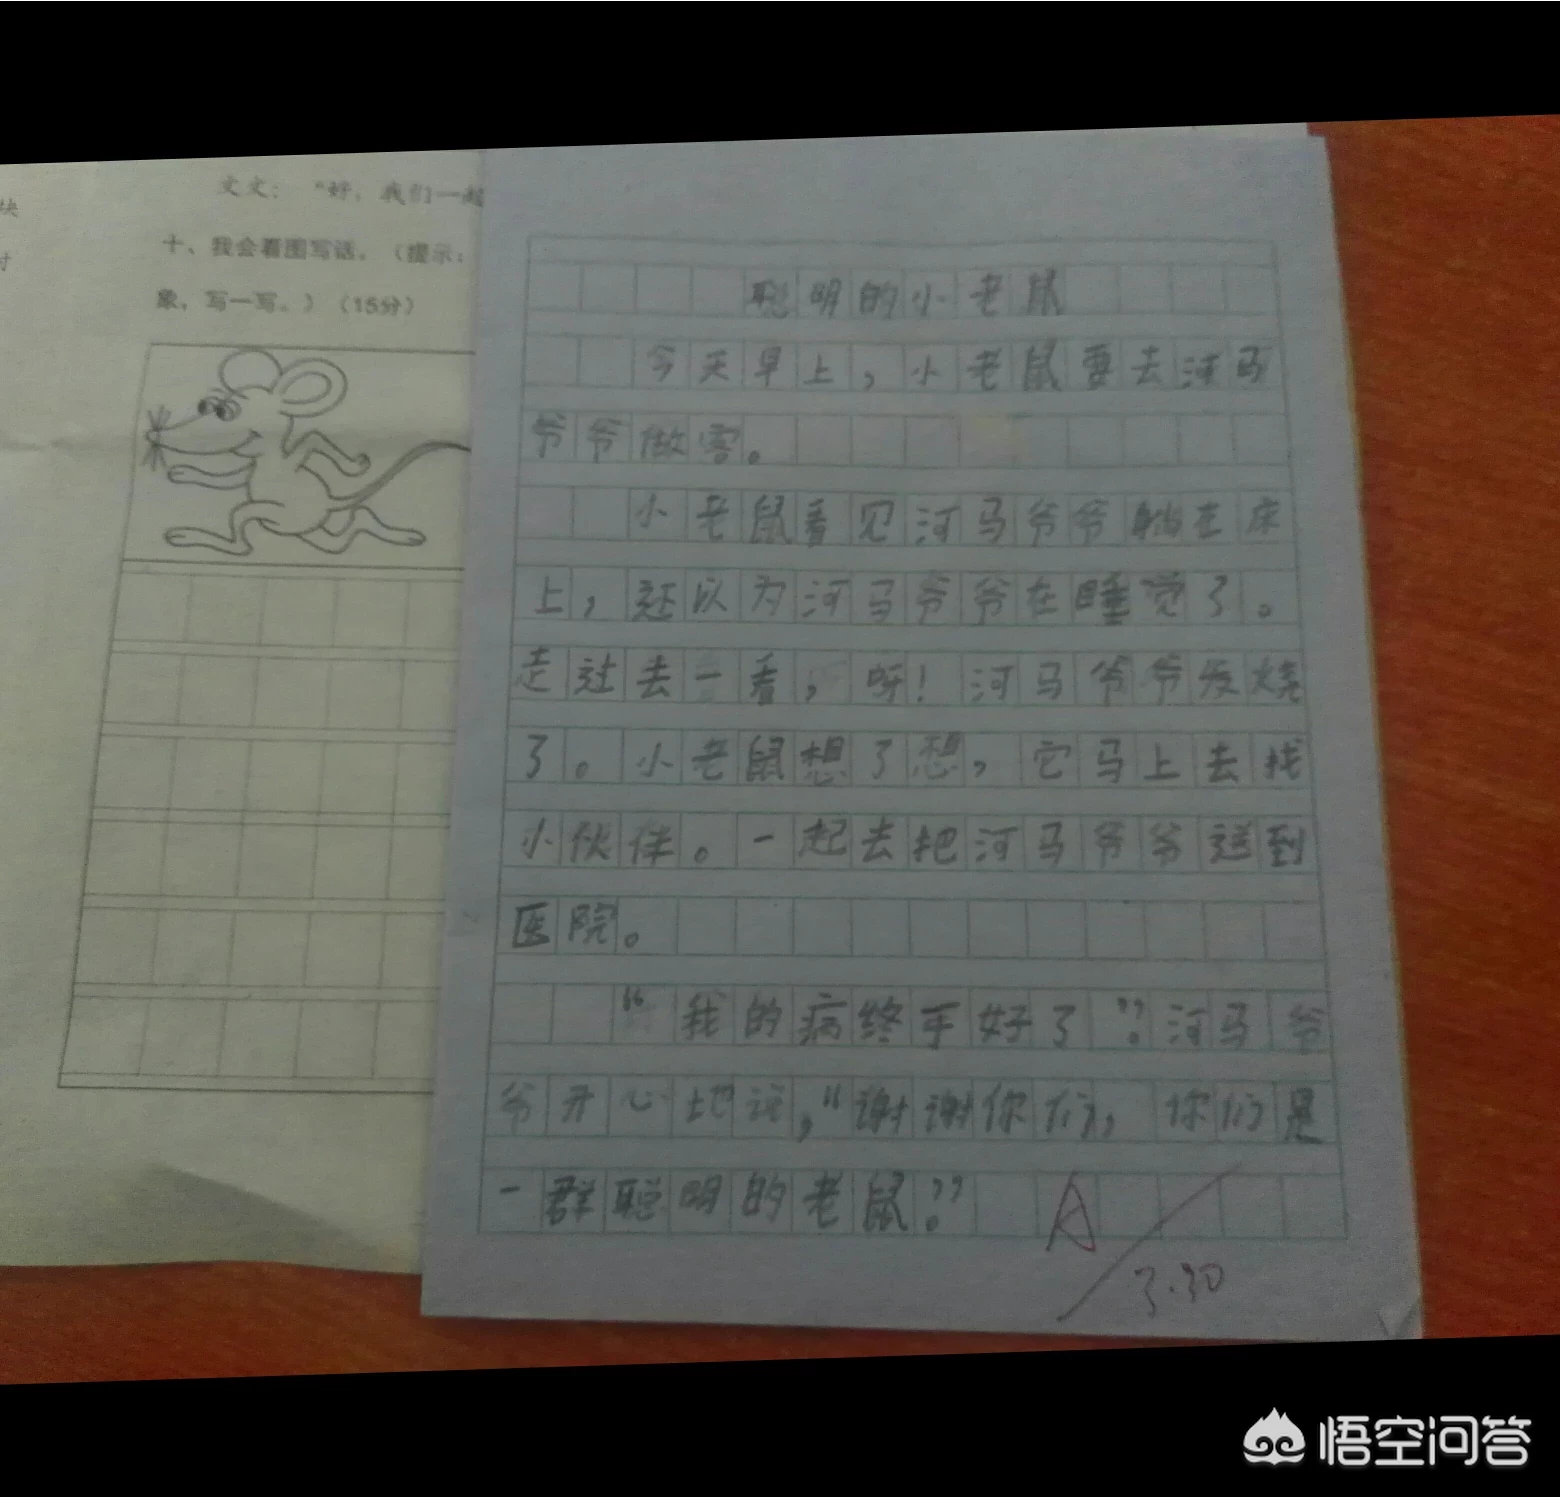 块
时
文文：“好，我们一起
十、我会看图写话。（提示：
象，写一写。）（15分）
聪明的小老鼠
今天早上，小老鼠要去河马
爷爷做客。
小老鼠看见河马爷爷躺在床
上，还以为河马爷爷在睡觉了。
走过去一看，呀！河马爷爷发烧
了。小老鼠想了想，它马上去找
小伙伴。一起去把河马爷爷送到
医院。
“我的病终于好了”？河马爷
爷开心地说，“谢谢你们，你们是
一群聪明的老鼠。”
A
3.30
悟空问答